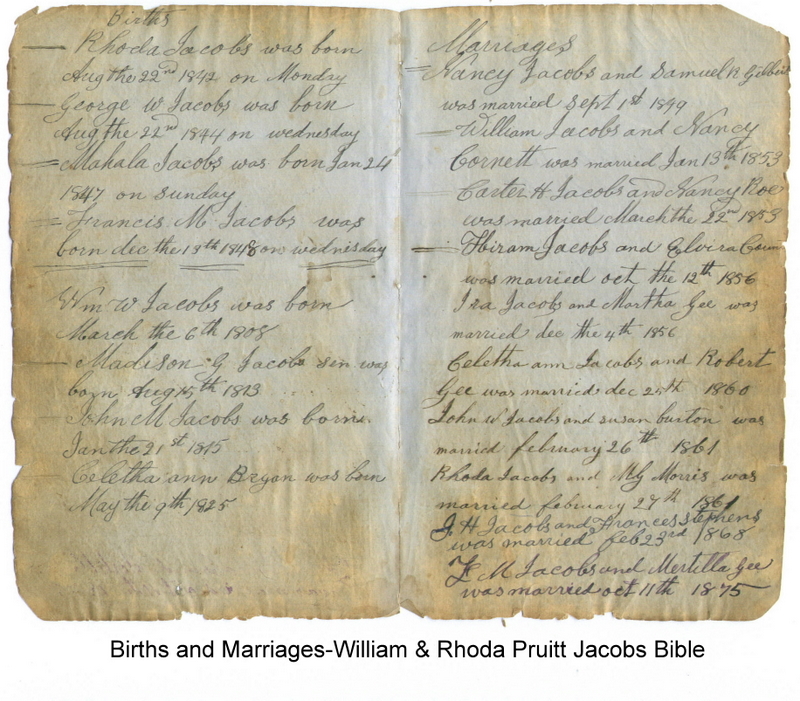 Births
Rhoda Jacobs was born
Aug the 22nd 1842 on Monday
George W Jacobs was born
Aug the 22nd 1844 on wednesday
Mahala Jacobs was born Jan 24
1847 on Sunday
Francis M Jacobs was
born dec the 13th 1848 on wednisday
Wm W Jacobs was born
March the 6th 1808
Madison G Jacobs sen was
born Aug 15th 1813
John M Jacobs was born
Jan the 21st 1815
Celetha ann Bryan was born
May the 9th 1825
Marriages
Nancy Jacobs and Samuel R
was married Sept 1st 1849
William Jacobs and Nancy
Cornett was married Jan 13th 1853
Carter H Jacobs and Nancy Roe
was married March the 22nd 1853
Hiram Jacobs and Elvira
was married oct the 12th 1856
Ira Jacobs and Martha Gee was
married dec the 4th 1856
Celetha ann Jacobs and Robert
Gee was married dec 25th 1860
John W Jacobs and susan burton was
married february 26th 1861
Rhoda Jacobs and Morris was
married february 27th 1861
J H Jacobs and Frances Stephens
was married feb 23rd 1868
F M Jacobs and Mertilla Gee
was married oct 11th 1875
Births and Marriages-William & Rhoda Pruitt Jacobs Bible